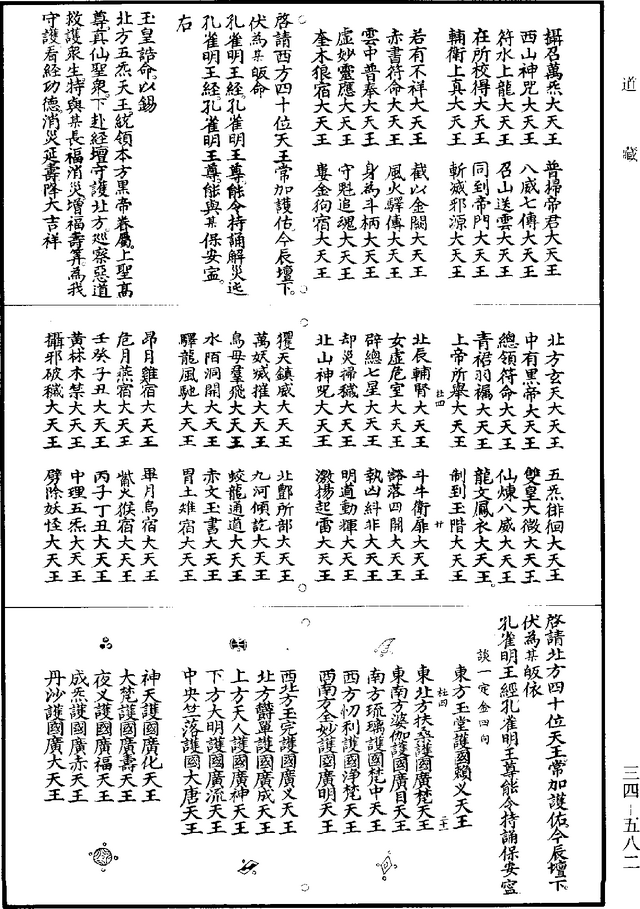 道藏
攝召萬炁大天王　普掃帝君大天王
西山神咒大天王　八威七傳大天王
符水上龍大天王　召山送雲大天王
在所校得大天王　同到帝門大天王
輔衛上真大天王　斬滅邪源大天王
若有不祥大天王　截以金關大天王
赤書符命大天王　風火驛傳大天王
雲中普奉大天王　身為斗柄大天王
虛妙靈應大天王　守䰢追魂大天王
奎木狼宿大天王　婁金狗宿大天王
啓請西方四十位天王常加護佑今辰壇下
伏為某皈命
孔雀明王經孔雀明王尊能令持誦解災迍
孔雀明王經孔雀明王尊能與某保安寍
右
玉皇誥命以錫
北方五炁天王統領本方黑帝眷屬上聖高
尊真仙聖衆下赴經壇守護北方巡察惡道
救護衆生特與某長福消災增福壽算為我
守護看經功德消災延壽降大吉祥
北方玄天大天王　五炁徘徊大天王
中有黑帝大天王　雙皇大微大天王
總領符命大天王　仙煉八威大天王
青裙羽襡大天王　龍文鳳衣大天王
上帝所舉大天王　制到玉階大天王
杜四　廿
北辰輔腎大天王　斗牛衛扉大天王
女虛危室大天王　豁落四開大天王
辟總七星大天王　執凶糾非大天王
却災掃穢大天王　明道動輝大天王
北山神咒大天王　激揚起雷大天王
玃天鎮威大天王　北酆所部大天王
萬妖滅摧大天王　九河傾訖大天王
鳥母羣飛大天王　蛟龍通道大天王
水陌洞開大天王　赤文玉書大天王
驛龍風馳大天王　胃土雉宿大天王
昴日雞宿大天王　畢月烏宿大天王
危月燕宿大天王　觜火猴宿大天王
壬癸子丑大天王　丙子丁丑大天王
黃秫木禁大天王　中理五炁大天王
攝邪破穢大天王　劈除妖怪大天王
啓請北方四十位天王常加護佑今辰壇下
伏為某皈依
孔雀明王經孔雀明王尊能令持誦保安寍
談一定金四句
東方玉堂護國賴义天王
杜四　二十一
東北方扶桑護國廣梵天王
東南方婆伽護國廣目天王
南方琉璃護國梵中天王
西方忉利護國淨梵天王
西南方全妙護國廣明天王
西北方玉完護國廣义天王
北方欝單護國廣成天王
上方天人護國廣神天王
下方大明護國廣流天王
中央廿落護國大唐天王
神天護國廣化天王
大梵護國廣壽天王
夜义護國廣福天王
成炁護國廣赤天王
丹沙護國廣大天王
三四—五八二